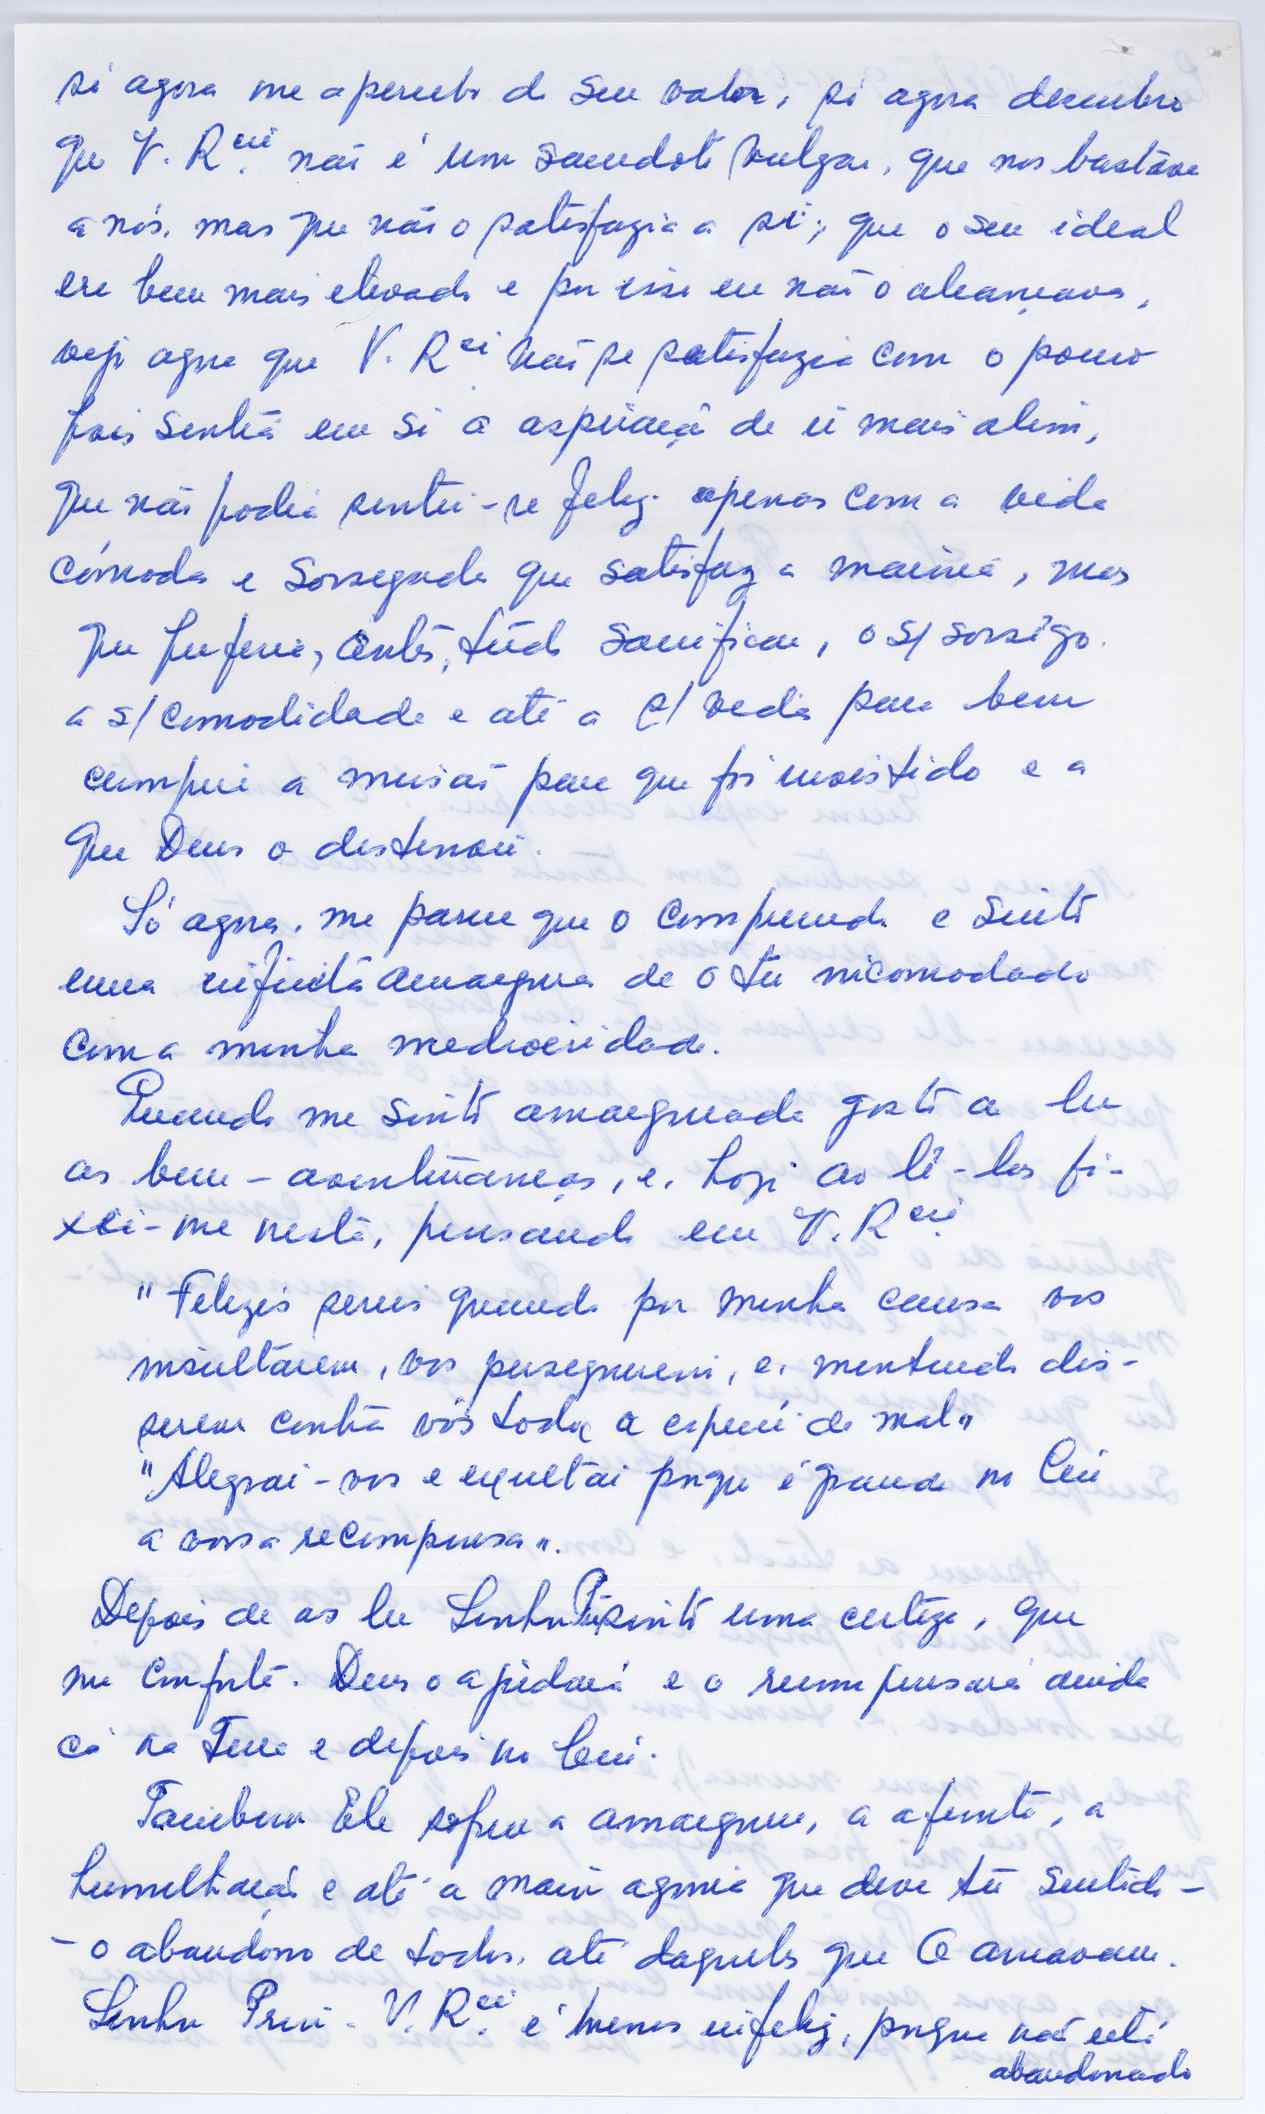 só agora me apercebo do seu valor, só agora descubro
que V. R.cia não é um sacerdote vulgar, que nos bastava
a nós, mas que não o satisfazia a si; que o seu ideal
era bem mais elevado e por isso eu não o alcançava,
vejo agora que V. R.cia não se satisfazia com o pouco
pois sentia em si a aspiração de ir mais além,
que não podia sentir-se feliz apenas com a vida
cómoda e sossegada que satisfaz a maioria, mas
que preferia, antes, tudo sacrificar, o s/ sossêgo,
a s/ comodidade e até a p/ vida para bem
cumprir a missão para que foi investido e a
que Deus o destinou.
Só agora, me parece que o compreendo e sinto
uma infinita amargura de o ter incomodado
com a minha mediocridade.
Quando me sinto amargurada gosto de ler
as bem-aventuranças, e, hoje ao lê-las fi-
xei-me nesta, pensando em V. R.cia
"Felizes sereis quando por minha causa vos
insultarem, vos perseguirem, e, mentindo dis-
serem contra vós toda a espécie de mal"
"Alegrai-vos e exultai porque é grande no Céu
a vossa recompensa".
Depois de as ler Senhor Prior sinto uma certeza, que
me conforta. Deus o ajudará e o recompensará ainda
cá na Terra e depois no Céu.
Também Ele sofreu a amargura, a afronta, a
humilhação e até a maior agonia que deve ter sentido -
- o abandono de todos, até daqueles que O amavam.
Senhor Prior - V. R.cia é menos infeliz, porque não está
abandonado